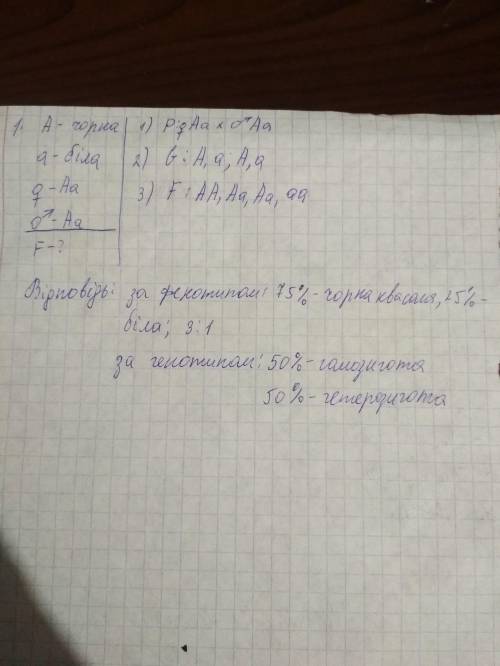 1. A - чорна 1) P: ♀Aa x ♂Aa
a - біла 2) G: A, a; A, a
♀ - Aa 3) F: AA, Aa, Aa, aa
♂ - Aa
F - ?
Відповідь: за фенотипом: 75% - чорна квасоля, 25% -
біла; 3:1
за генотипом: 50% - гомозигота
50% - гетерозигота